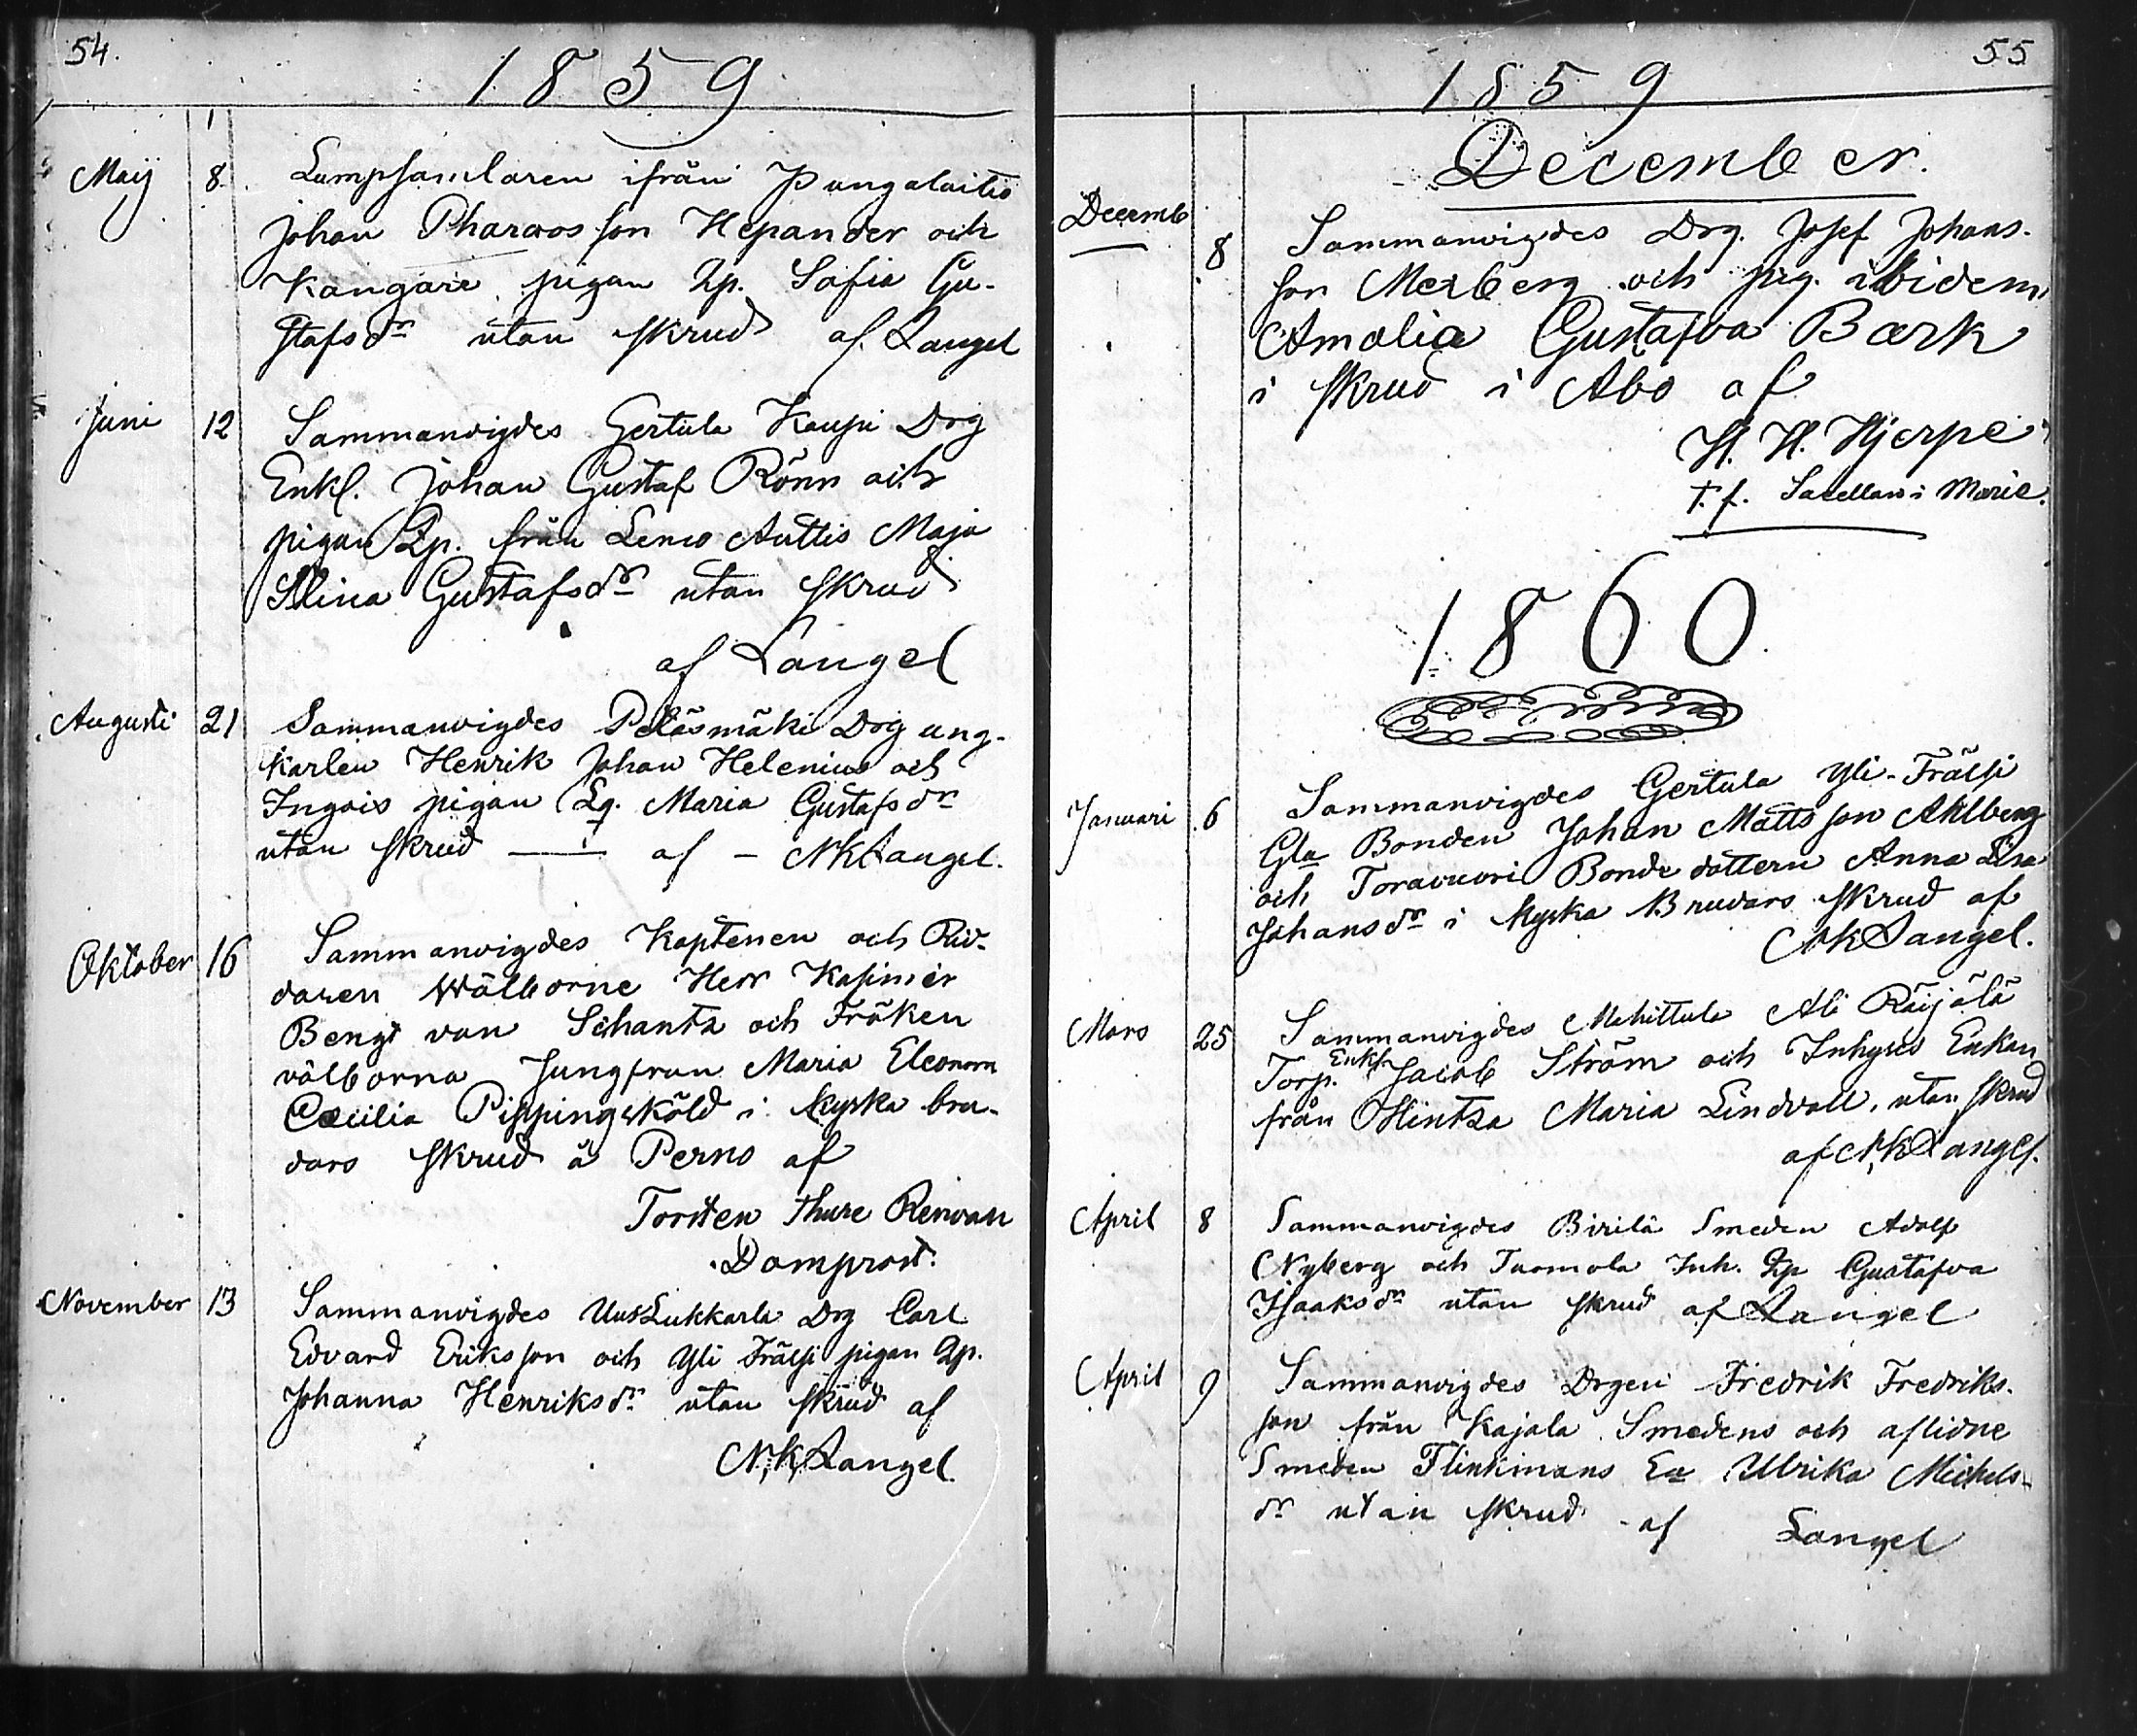 54.
1859
Maij 8. Lumpsamlaren ifrån Pungalaitio
Johan Pharaos son Hepander och
Kangare pigan Qp. Sofia Gu-
stafsdr utan skrud af Langel
Juni 12 Sammanvigdes Gertula Kaupi Drg
Enkl. Johan Gustaf Rönn och
pigan Qp. från Lemo Anttis Maja
Stina Gustafsdr utan skrud
af Langel
Augusti 21 Sammanvigdes Peläsmäki Drg ung-
karlen Henrik Johan Helenius och
Ingois pigan Qq. Maria Gustafsdr
utan skrud — af — NKLangel.
Oktober 16 Sammanvigdes Kaptenen och Rid-
daren Wälborne Herr Kasimir
Bengt von Schantz och Fröken
välborna Jungfrun Maria Eleonora
Cæcilia Pippingsköld i kyska bru-
dars skrud å Perno af
Torsten Thure Renvall
Domprost.
November 13 Sammanvigdes Uus Lukkarla Drg Carl
Edvard Eriksson och Yli Frälsi pigan Qp.
Johanna Henriksdr utan skrud af
N,K,Langel.
55
1859
December.
Decemb 8 Sammanvigdes Drg. Josef Johans-
son Merberg och pig. ibidem
Amalia Gustafva Bærk
i skrud i Abo af
H. H. Hjerpe
t. f. Sacellan i Marie.
1860.
Januari 6 Sammanvigdes Gertula Yli-Frälsi
Gla Bonden Johan Mattsson Ahlberg
och Toravuori Bonde dottern Anna Lisa
Johansdr i kyska Brudars skrud af
NKLangel.
Mars 25 Sammanvigdes Mahittula Ali Räijälä
Torp. Enkl. Jacob Ström och Inhyses Enkan
från Hintsa Maria Lindvall, utan skrud
af N,KLangel.
April 8 Sammanvigdes Birilä Smeden Adolf
Nyberg och Tuomola Inh. Qp Gustafva
Isaaksdr utan skrud af Langel
April 9 Sammanvigdes Drgen Fredrik Fredriks-
son från Kajala Smedens och aflidne
Smeden Flinkmans Ea Ulrika Michels-
dr utan skrud af Langel